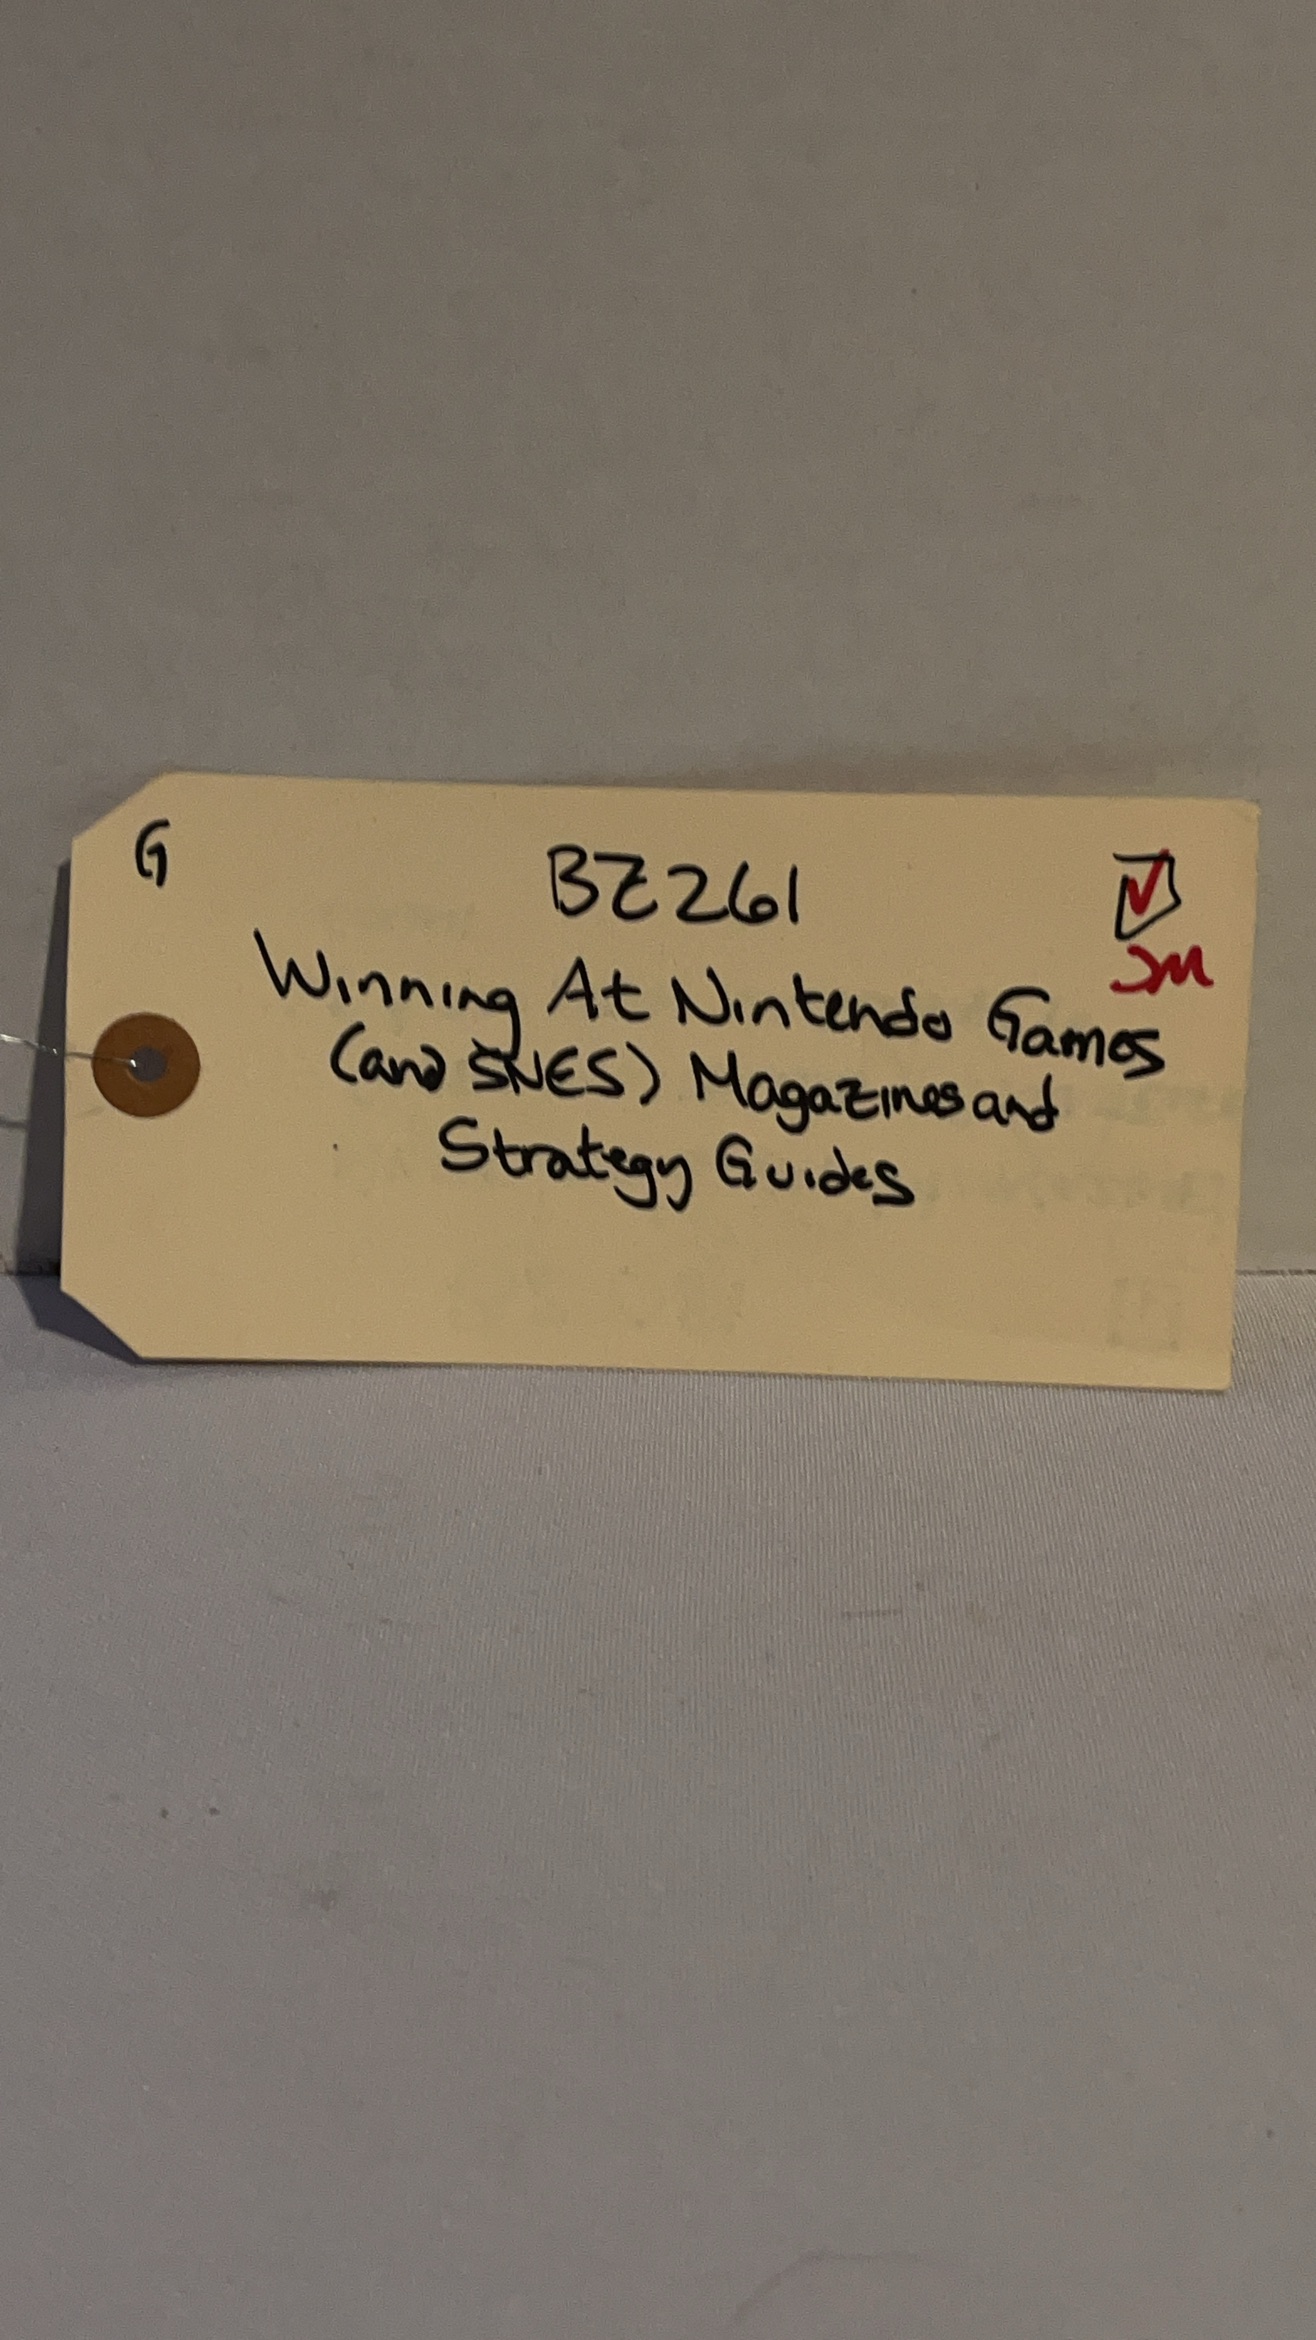 G
BZ261
☑
JM
Winning At Nintendo Games
(and SNES) Magazines and
Strategy Guides